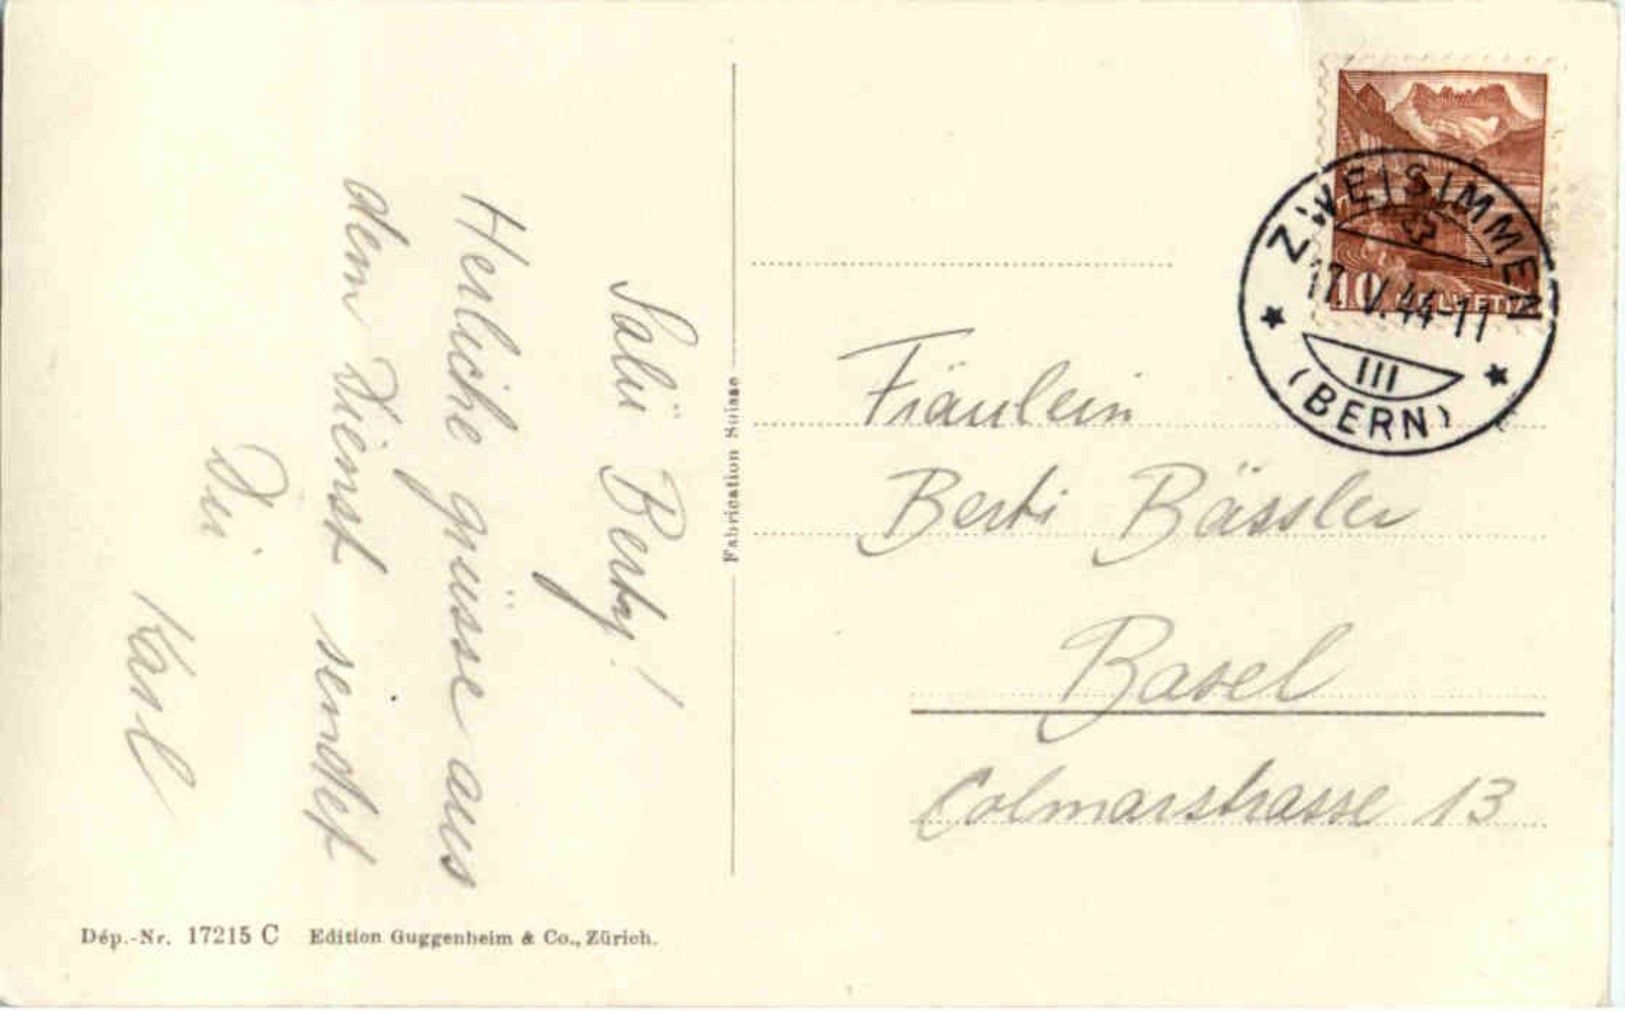 Salü Berty!
Herliche grüsse aus
dem Dienst sendet
Dir
Karl
Fabrication Suisse
Dép.-Nr. 17215 C Edition Guggenheim & Co., Zürich.
ZWEISIMMEN
17.V.44-11
III
(BERN)
10 HELVETIA
Fräulein
Berti Bässler
Basel
Colmarstrasse 13